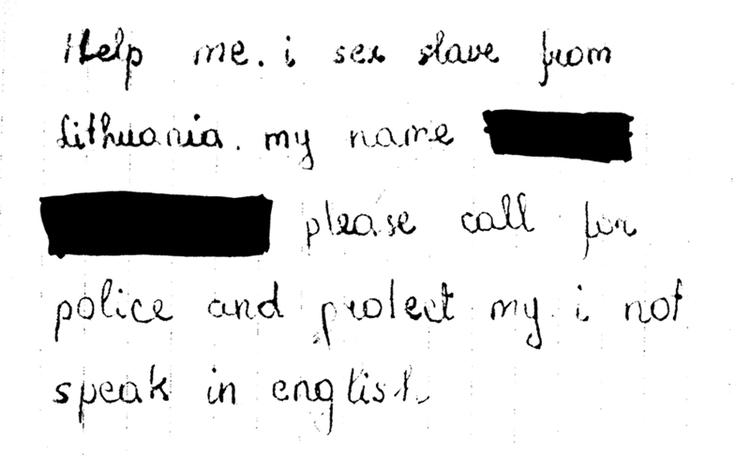 Help me. i sex slave from
Lithuania. my name
please call for
police and protect my i not
speak in english.